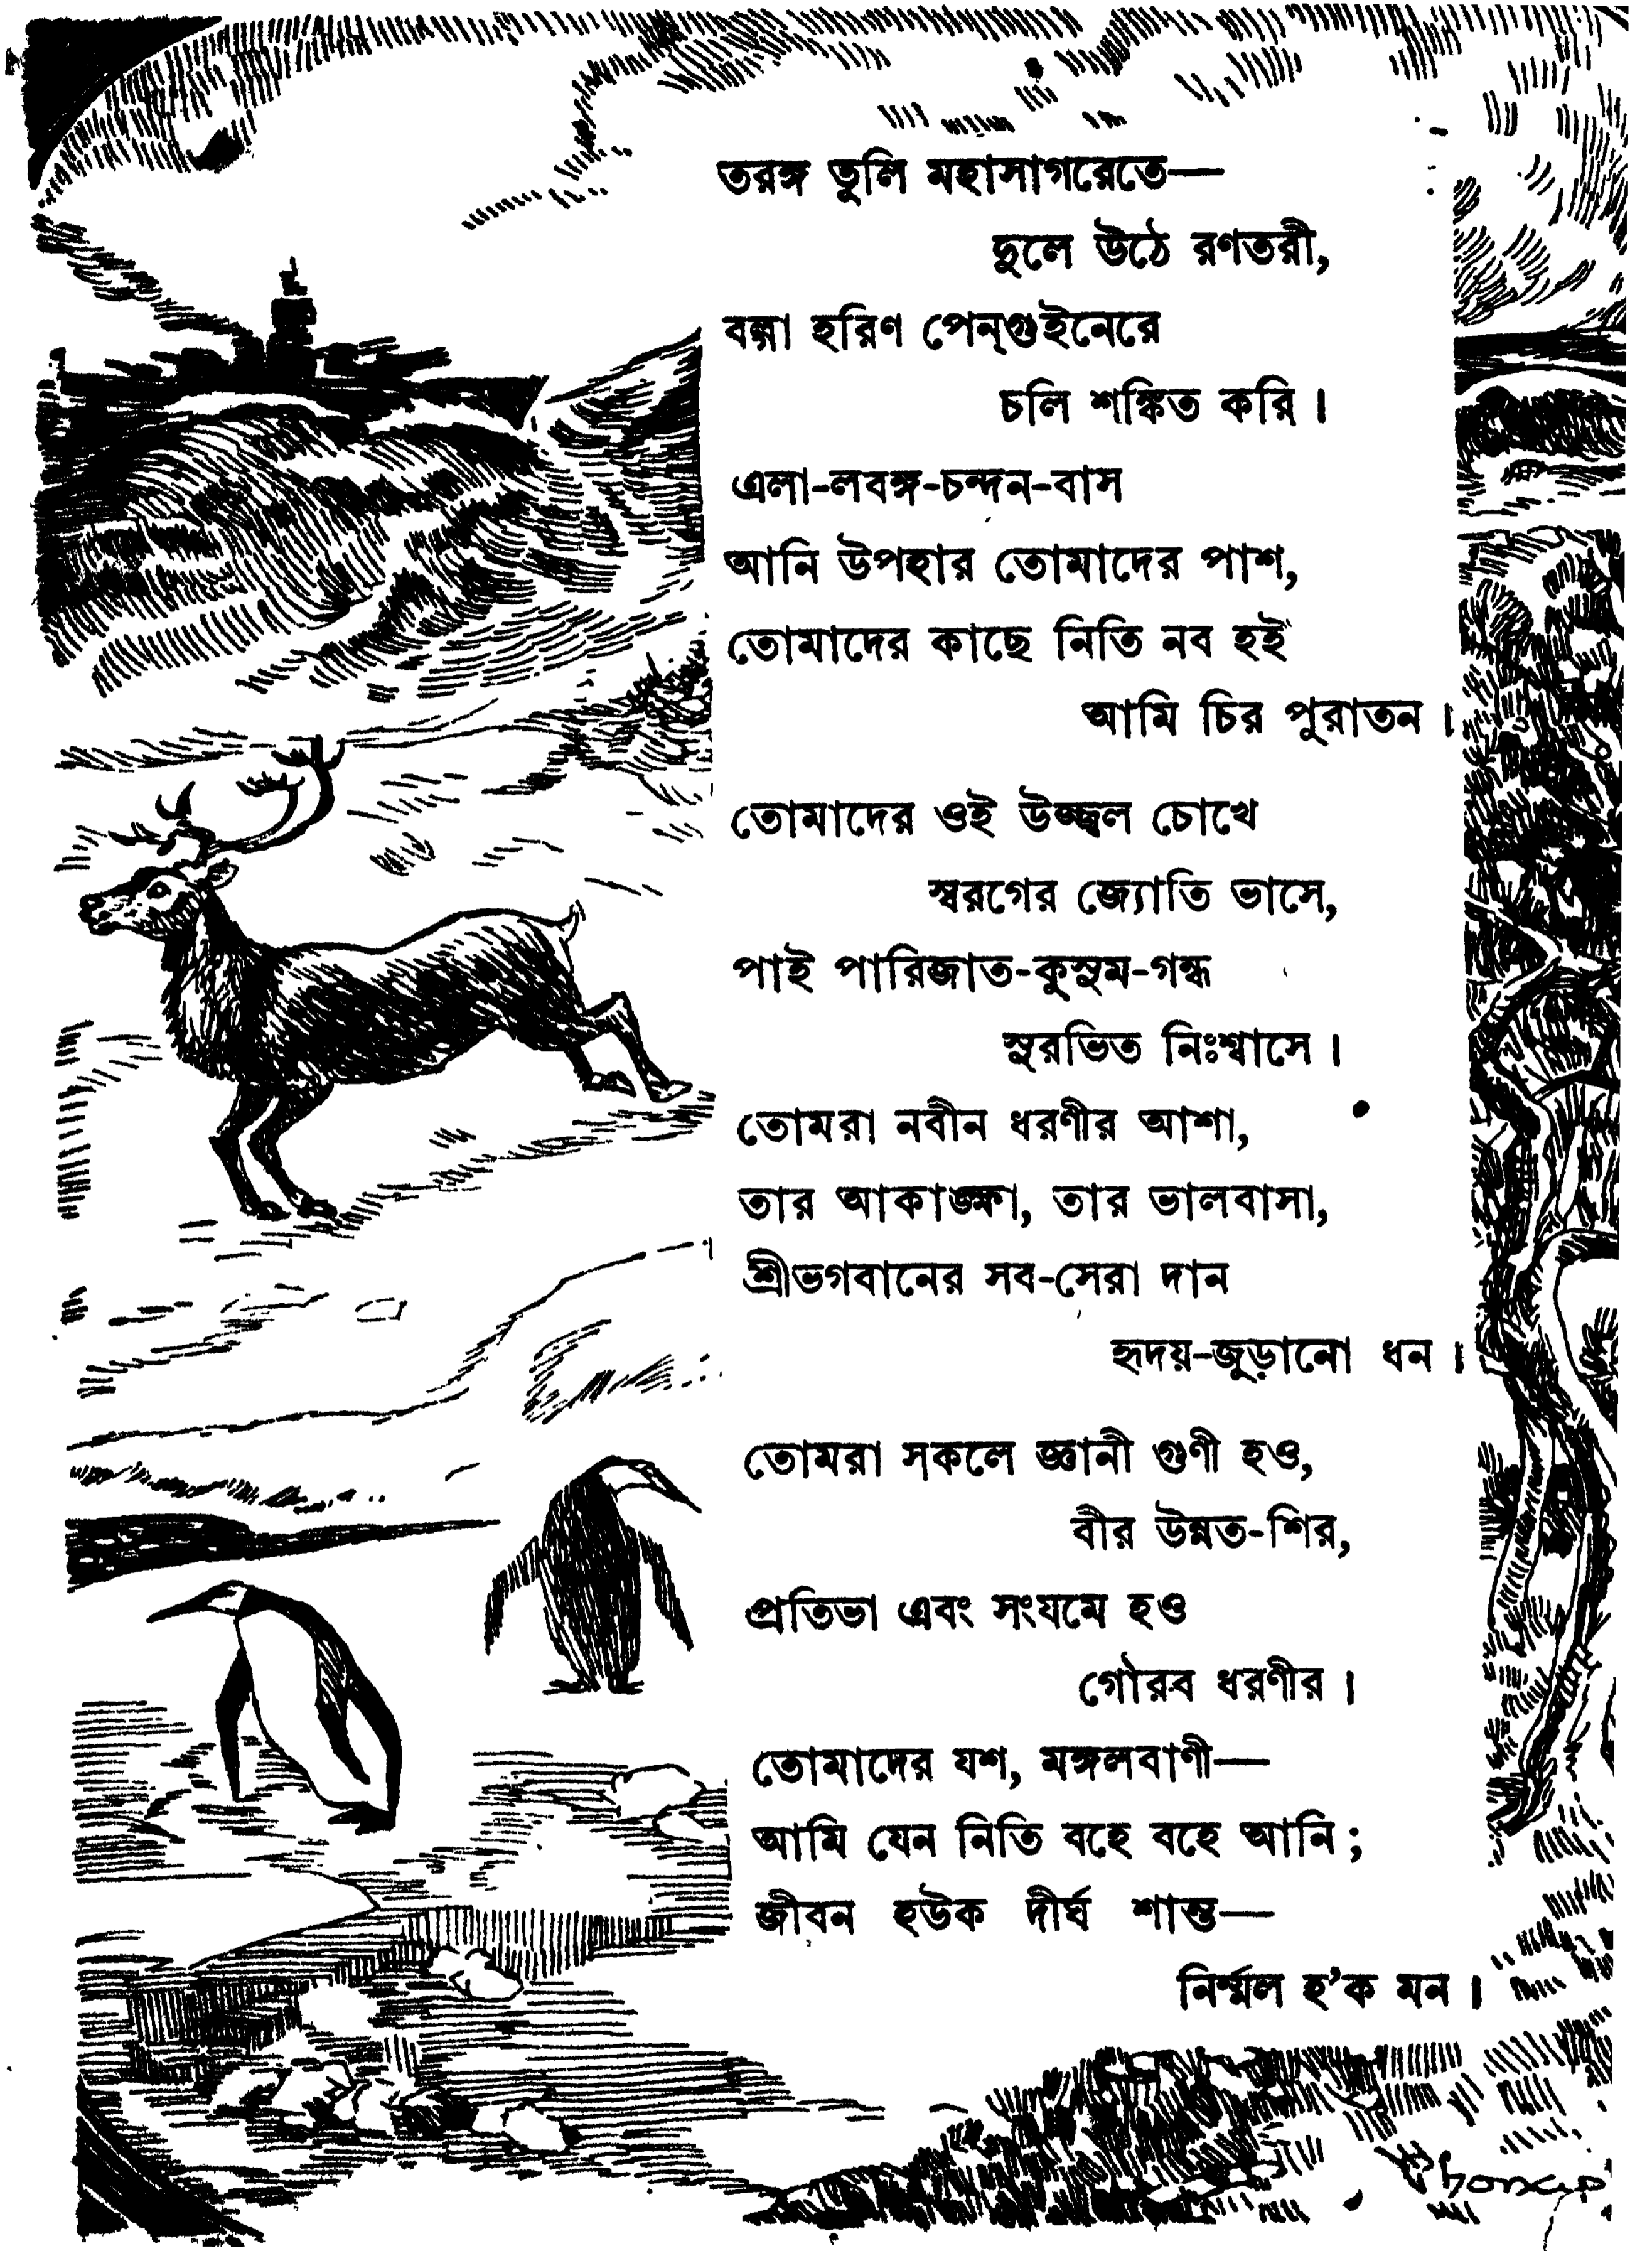 তরঙ্গ তুলি মহাসাগরেতে—
দুলে উঠে রণতরী,
বল্গা হরিণ পেন্‌গুইনেরে
চলি শঙ্কিত করি।
এলা-লবঙ্গ-চন্দন-বাস
আনি উপহার তোমাদের পাশ,
তোমাদের কাছে নিতি নব হই
আমি চির পুরাতন।
তোমাদের ওই উজ্জ্বল চোখে
স্বরগের জ্যোতি ভাসে,
পাই পারিজাত-কুসুম-গন্ধ
সুরভিত নিঃশ্বাসে।
তোমরা নবীন ধরণীর আশা,
তার আকাঙ্ক্ষা, তার ভালবাসা,
শ্রীভগবানের সব-সেরা দান
হৃদয়-জুড়ানো ধন।
তোমরা সকলে জ্ঞানী গুণী হও,
বীর উন্নত-শির,
প্রতিভা এবং সংযমে হও
গৌরব ধরণীর।
তোমাদের যশ, মঙ্গলবাণী—
আমি যেন নিতি বহে বহে আনি;
জীবন হউক দীর্ঘ শান্ত—
নির্ম্মল হ’ক মন।